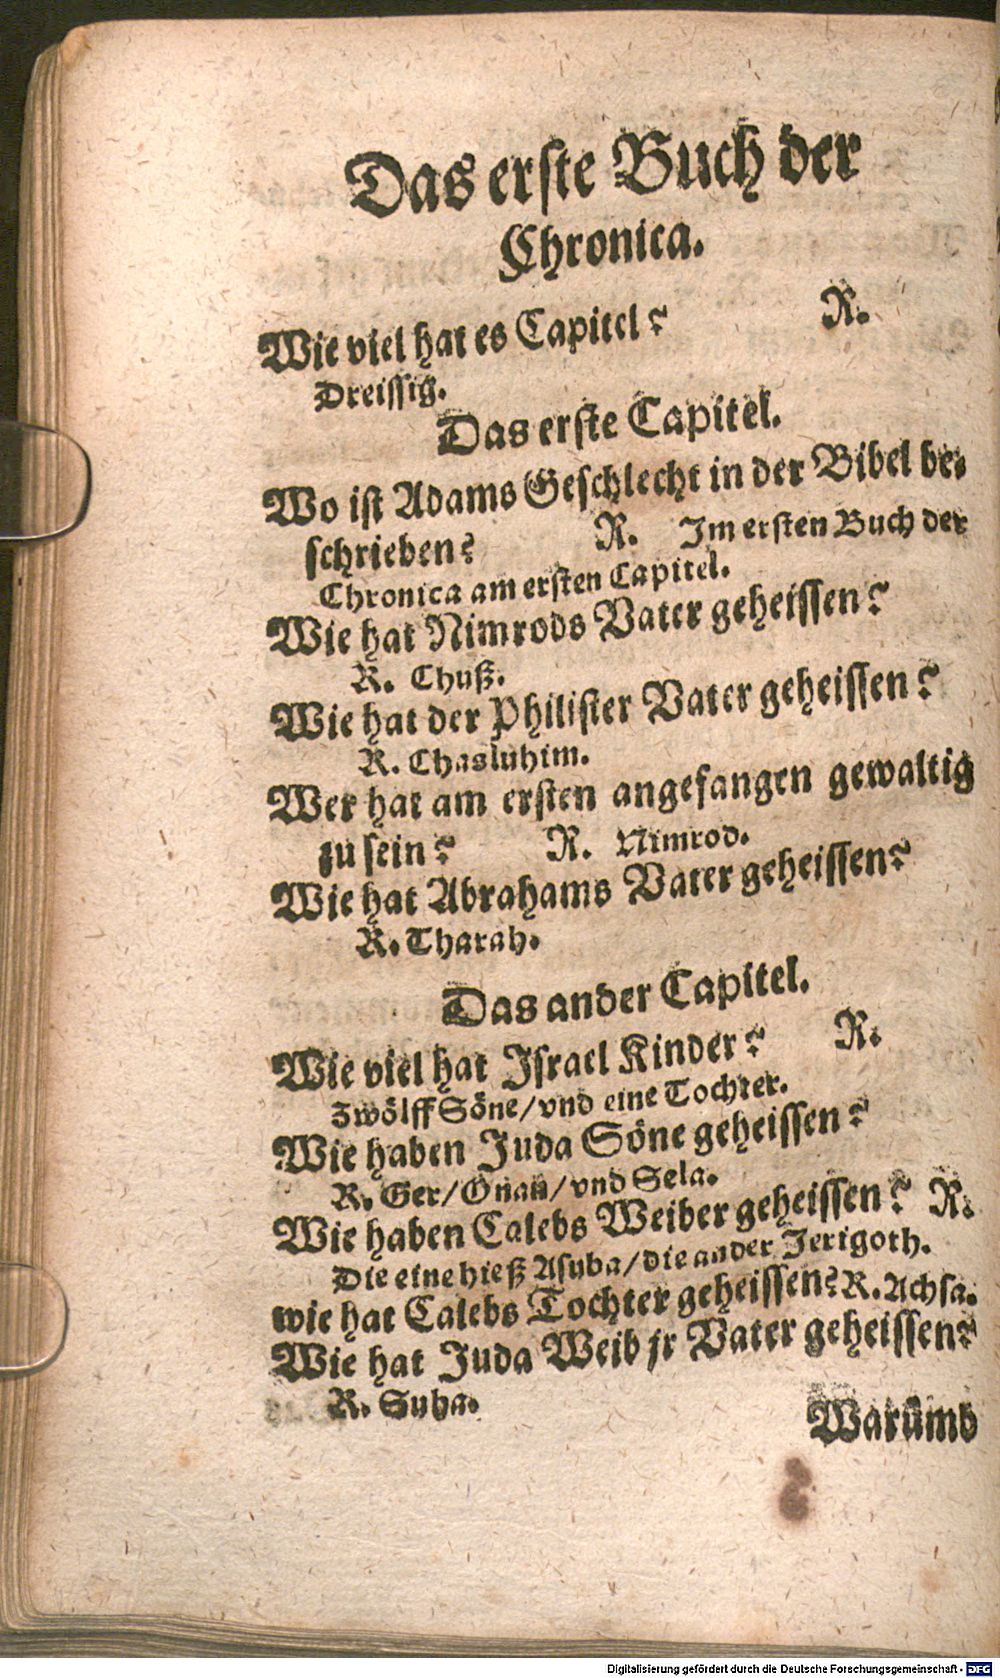 Das erste Buch der
Chronica.
Wie viel hat es Capitel? R.
Dreissig.
Das erste Capitel.
Wo ist Adams Geschlecht in der Bibel be-
schrieben? R. Im ersten Buch der
Chronica am ersten Capitel.
Wie hat Nimrods Vater geheissen?
R. Chuß.
Wie hat der Philister Vater geheissen?
R. Chasluhim.
Wer hat am ersten angefangen gewaltig
zu sein? R. Nimrod.
Wie hat Abrahams Vater geheissen?
R. Tharah.
Das ander Capitel.
Wie viel hat Israel Kinder? R.
Zwölff Söne/vnd eine Tochter.
Wie haben Juda Söne geheissen?
R. Ger/Onan/vnd Sela.
Wie haben Calebs Weiber geheissen? R.
Die eine hieß Asuba/die ander Jerigoth.
wie hat Calebs Tochter geheissen? R. Achsa.
Wie hat Juda Weib jr Vater geheissen?
R. Suha.
Warumb
Digitalisierung gefördert durch die Deutsche Forschungsgemeinschaft - DFG